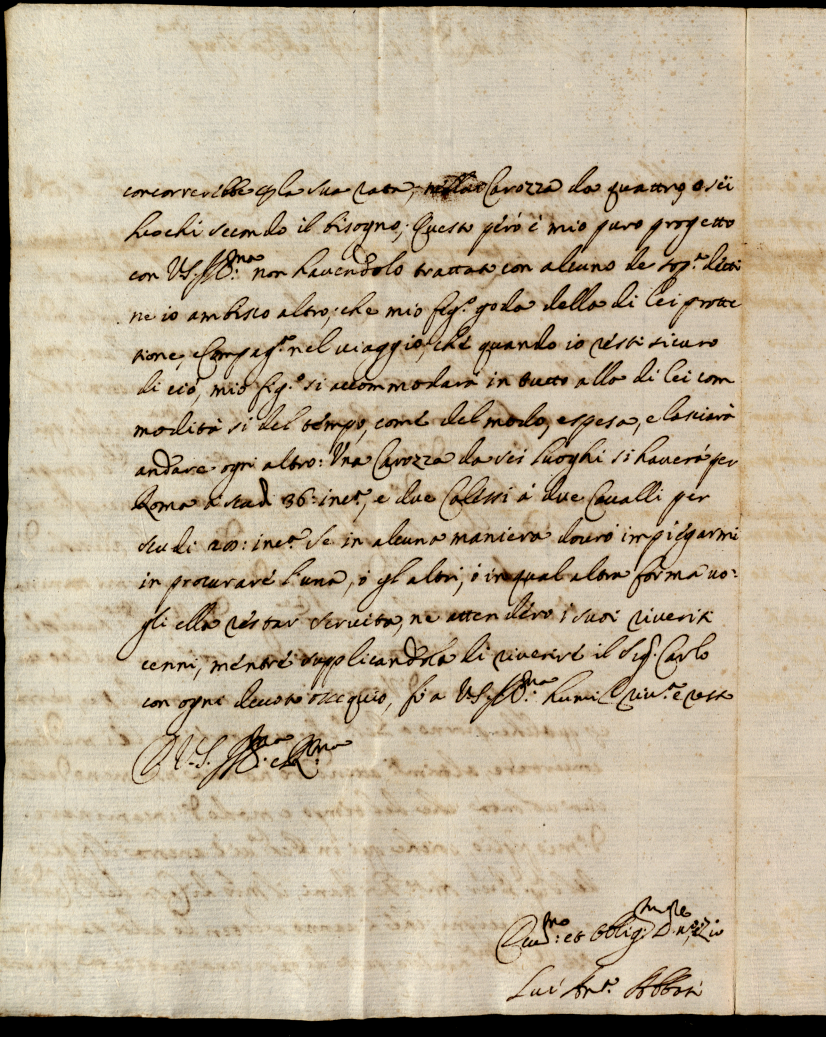 concorrerebbe p la sua rata, nella Carozza da quattro, o sei
luochi secondo il bisogno; Questo però è mio puro progetto
con V.S. Ill.ma non havendolo trattato con alcuno de sop.ti detti
ne io ambisco altro, che mio fig.o goda della di lei prote
tione, e Compag.a nel viaggio, che quando io resti sicuro
di ciò, mio fig.o si accommodarà in tutto alla di lei com
modità si del tempo, come del modo, e spesa, e lasciarà
andare ogni altro: Una Carozza da sei luoghi si haverà per
Roma a scudi 36: inc.a, e due Calessi à due Cavalli per
scudi 20: inc.a Se in alcuna maniera dovrò impiegarmi
in procurare l'una, ò gl'altri, ò in qual altra forma vo=
gli ella restar servita, ne attenderò i suoi riveriti
cenni, mentre supplicandola di riverire il Sig.r Carlo
con ogni devoto ossequio, fò a V.S. Ill.ma humil.e riv.a e resto
D V.S. Ill.ma e R.ma
et Obblig.mo
Abbati